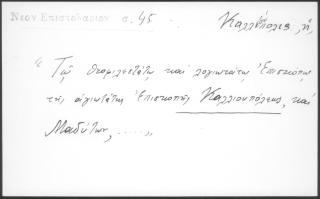 Νεον Επιστολαριον σ. 45. Καλλιόπολις, ἡ,
"Τῷ θεοφιλεστάτῳ καὶ λογιωτάτῳ Ἐπισκόπῳ
τῆς ἁγιωτάτης Ἐπισκοπῆς Καλλιουπόλεως, καὶ
Μαδύτων, ......"